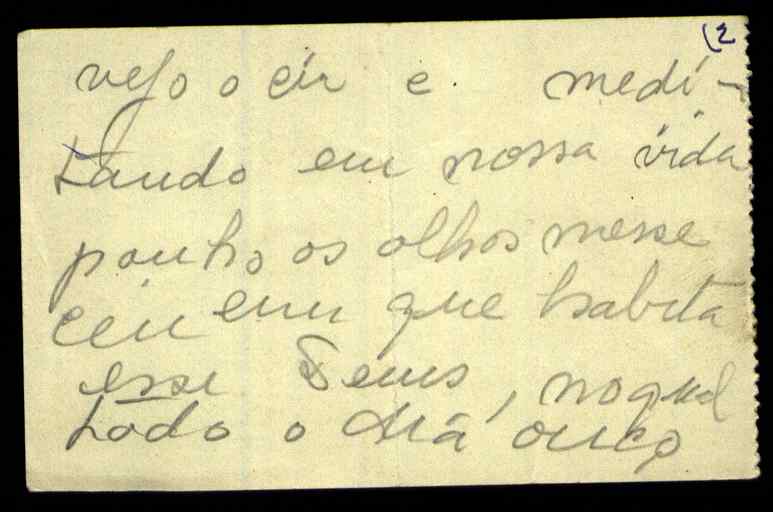 (2
vejo o céu e medi-
tando em nossa vida
ponho os olhos nesse
céu em que habita
esse Deus, no qual
todo o dia ouço